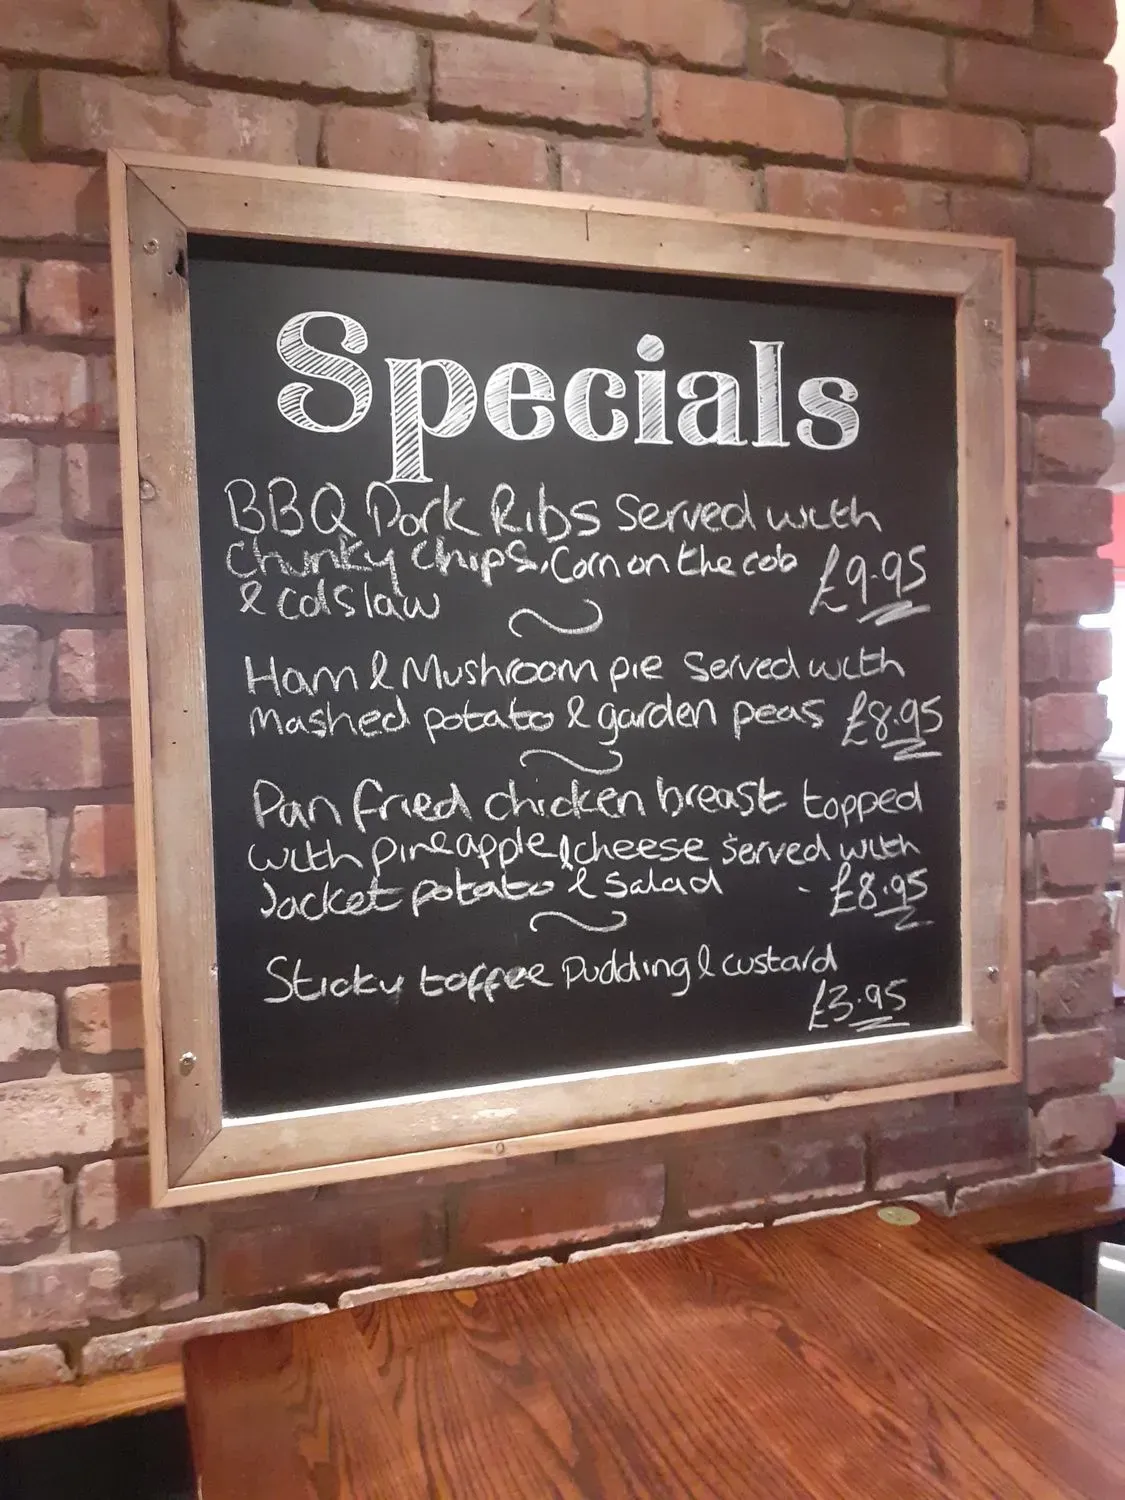 Specials
BBQ Pork Ribs Served with
Chunky Chips, Corn on the cob £9.95
& colslaw
Ham & Mushroom pie served with
mashed potato & garden peas £8.95
Pan fried chicken breast topped
with pineapple & cheese served with
Jacket potato & Salad - £8.95
Sticky toffee Pudding & custard
£3.95